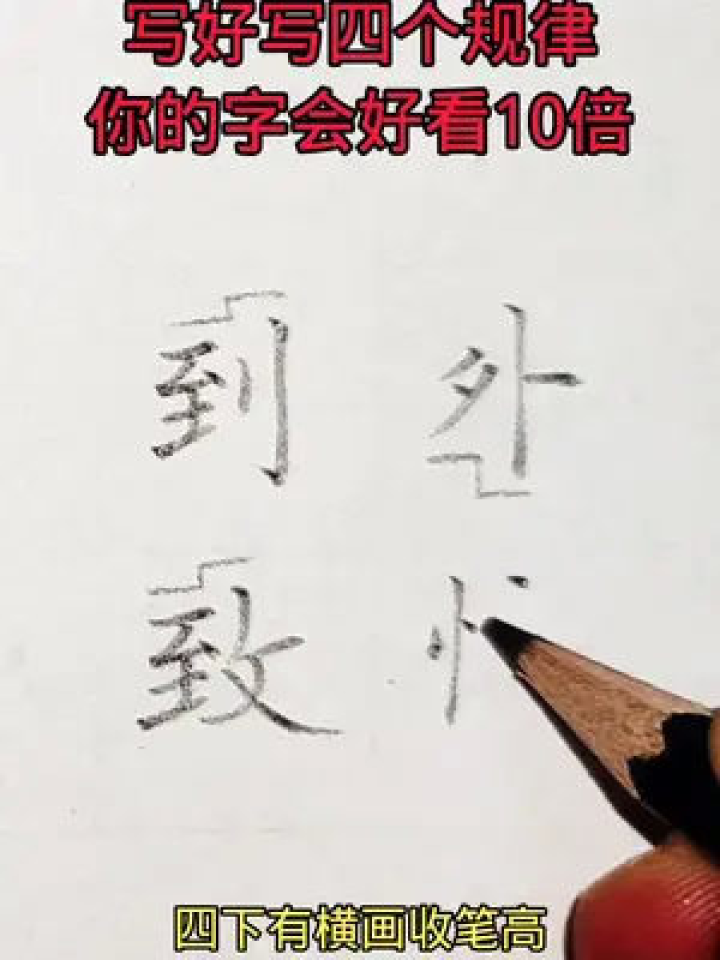 写好写四个规律
你的字会好看10倍
到 外
致 忄
四下有横画收笔高